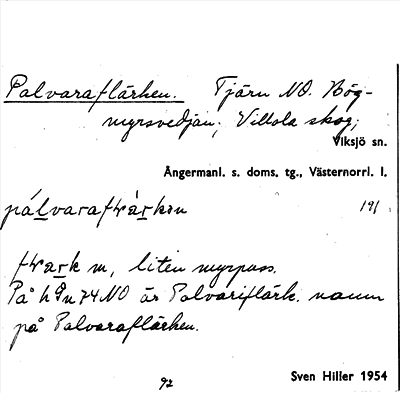 Palvaraflärken. Tjärn NO. Hög-
myrsvedjan; Villola skog;
Viksjö sn.
Ångermanl. s. doms. tg., Västernorrl. l.
pálvaraflärkən 191
flark m, liten myrpuss.
På h 9 n 74 NO är Palvariflärk. namn
på Palvaraflärken.
92 Sven Hiller 1954